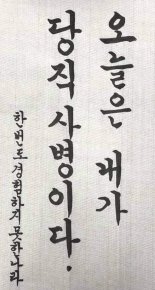 오늘은 내가
당직 사병이다.
한번도경험하지못한나라